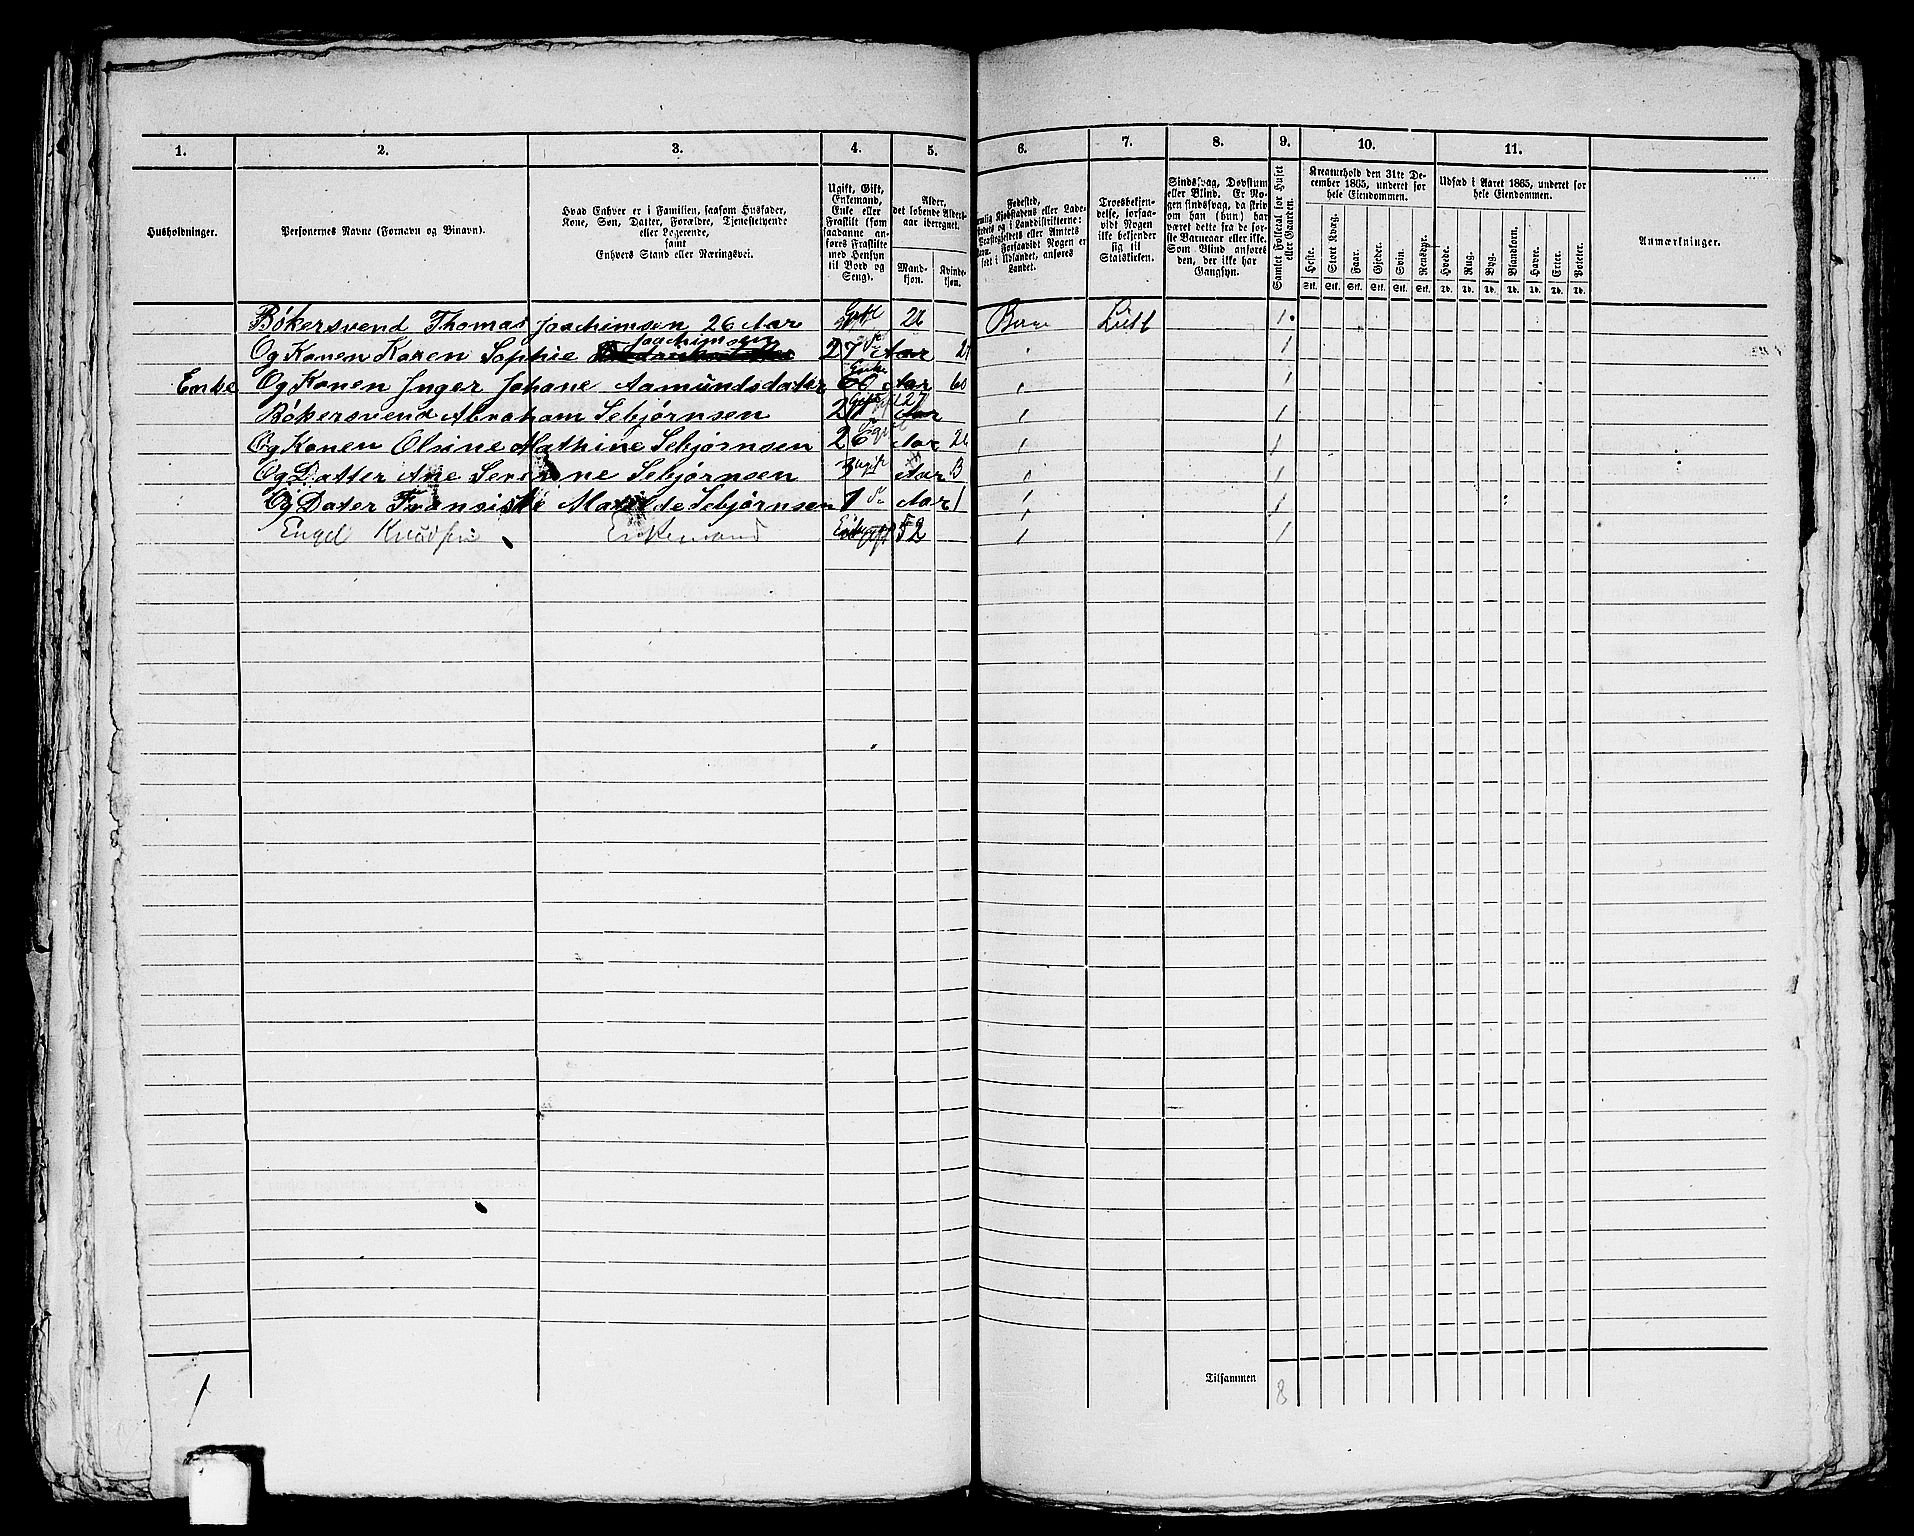 1. 2. 3. 4. 5. 6. 7. 8. 9. 10. 11.
Husholdninger.
Personernes Navne (Fornavn og Binavn).
Hvad Enhver er i Familien, saasom Husfader,
Kone, Søn, Datter, Forældre, Tjenestetyende
eller Logerende,
samt
Enhvers Stand eller Næringsvei.
Ugift, Gift,
Enkemand,
Enke eller
Fraskilt (som
saadanne an-
føres Fraskilte
med Hensyn
til Bord og
Seng).
Alder,
det løbende Alders-
aar iberegnet.
Mand-
kjøn.
Kvinde-
kjøn.
Fødested,
Forsaavidt Nogen er
født i Udlandet, anføres
Landet.
Troesbekjen-
delse, forsaa-
vidt Nogen
ikke bekjender
sig til
Statskirken.
Sindssvag, Døvstum
eller Blind. Er No-
gen sindssvag, da skriv
om han (hun) har
været dette fra de før-
ste Barneaar eller ikke.
Som Blind anføres
den, der ikke har
Gangsyn.
Samlet Folketal for Huset
eller Gaarden.
Kreaturhold den 31te De-
cember 1865, underet for
hele Eiendommen.
Heste. Stort Kvæg. Faar. Gjeder. Svin. Rensdyr.
Stk. Stk. Stk. Stk. Stk. Stk.
Udsæd i Aaret 1865, underet for
hele Eiendommen.
Hvede. Rug. Byg. Blandkorn. Havre. Erter. Poteter.
Td. Td. Td. Td. Td. Td. Td.
Anmærkninger.
Bökersvend Thomas Joachimsen 26 Aar Gift 26 Lith 1
Joachimsen
Og Konen Karen Sophie 27 Aar 27 1
Enke Og Konen Inger Johane Aamundsdater 60 Enke Aar 60 1
Bökersvend Abraham Sebjørnsen 27 Gift Aar 27 1
Og Konen Olsine Mathine Sebjørnsen 26 Aar 26 1
Og Datter Ane Serine Sebjørnsen 3 ugift Aar 3 1
Og Dater Fransiske Matilde Sebjørnsen 1 Aar 1 1
Engel Knudsen Enkemand 52 1
Tilsammen 8
1